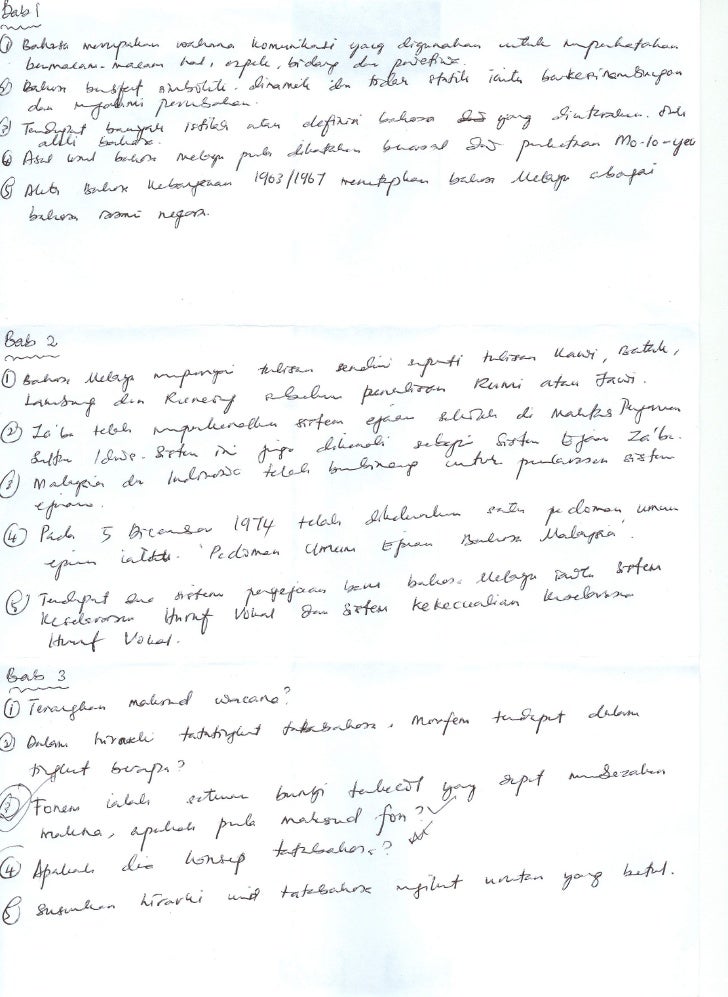 Bab 1
① Bahasa merupakan wahana komunikasi yang digunakan untuk memperkatakan
bermacam-macam hal, aspek, bidang dan profesion.
② Bahasa bersifat simbolik, dinamik dan tidak statik iaitu berkesinambungan
dan mengalami perubahan.
③ Terdapat banyak istilah atau definisi bahasa yang diutarakan oleh
ahli bahasa.
④ Asal usul bahasa melayu pula dikatakan berasal dari perkataan Mo-lo-yeu
⑤ Akta Bahasa Kebangsaan 1963/1967 menetapkan bahasa Melayu sebagai
bahasa rasmi negara.
Bab 2
① Bahasa Melayu mempunyai tulisan sendiri seperti tulisan Kawi, Batak,
Lampung dan Rencong sebelum penulisan Rumi atau Jawi.
② Za'ba telah memperkenalkan sistem ejaan sekolah di Maktab Perguruan
Sultan Idris. Sistem ini juga dikenali sebagai Sistem Ejaan Za'ba.
③ Malaysia dan Indonesia telah berbincang untuk penyelarasan sistem
ejaan.
④ Pada 5 Disember 1974 telah dikeluarkan satu pedoman umum
ejaan iaitu 'Pedoman Umum Ejaan Bahasa Malaysia'.
⑤ Terdapat dua sistem pengejaan baru bahasa Melayu iaitu sistem
Keselarasan Huruf Vokal dan sistem kekecualian keselarasan
Huruf Vokal.
Bab 3
① Terangkan maksud wacana?
② Dalam hiraeki tatatingkat tatabahasa, morfem terdapat dalam
tingkat berapa?
③ Fonem ialah satuan bunyi terkecil yang dapat membezakan
makna, apakah pula maksud fon?
④ Apakah dia konsep tatabahasa?
⑤ Susunkan hirarki unit tatabahasa mengikut urutan yang betul.